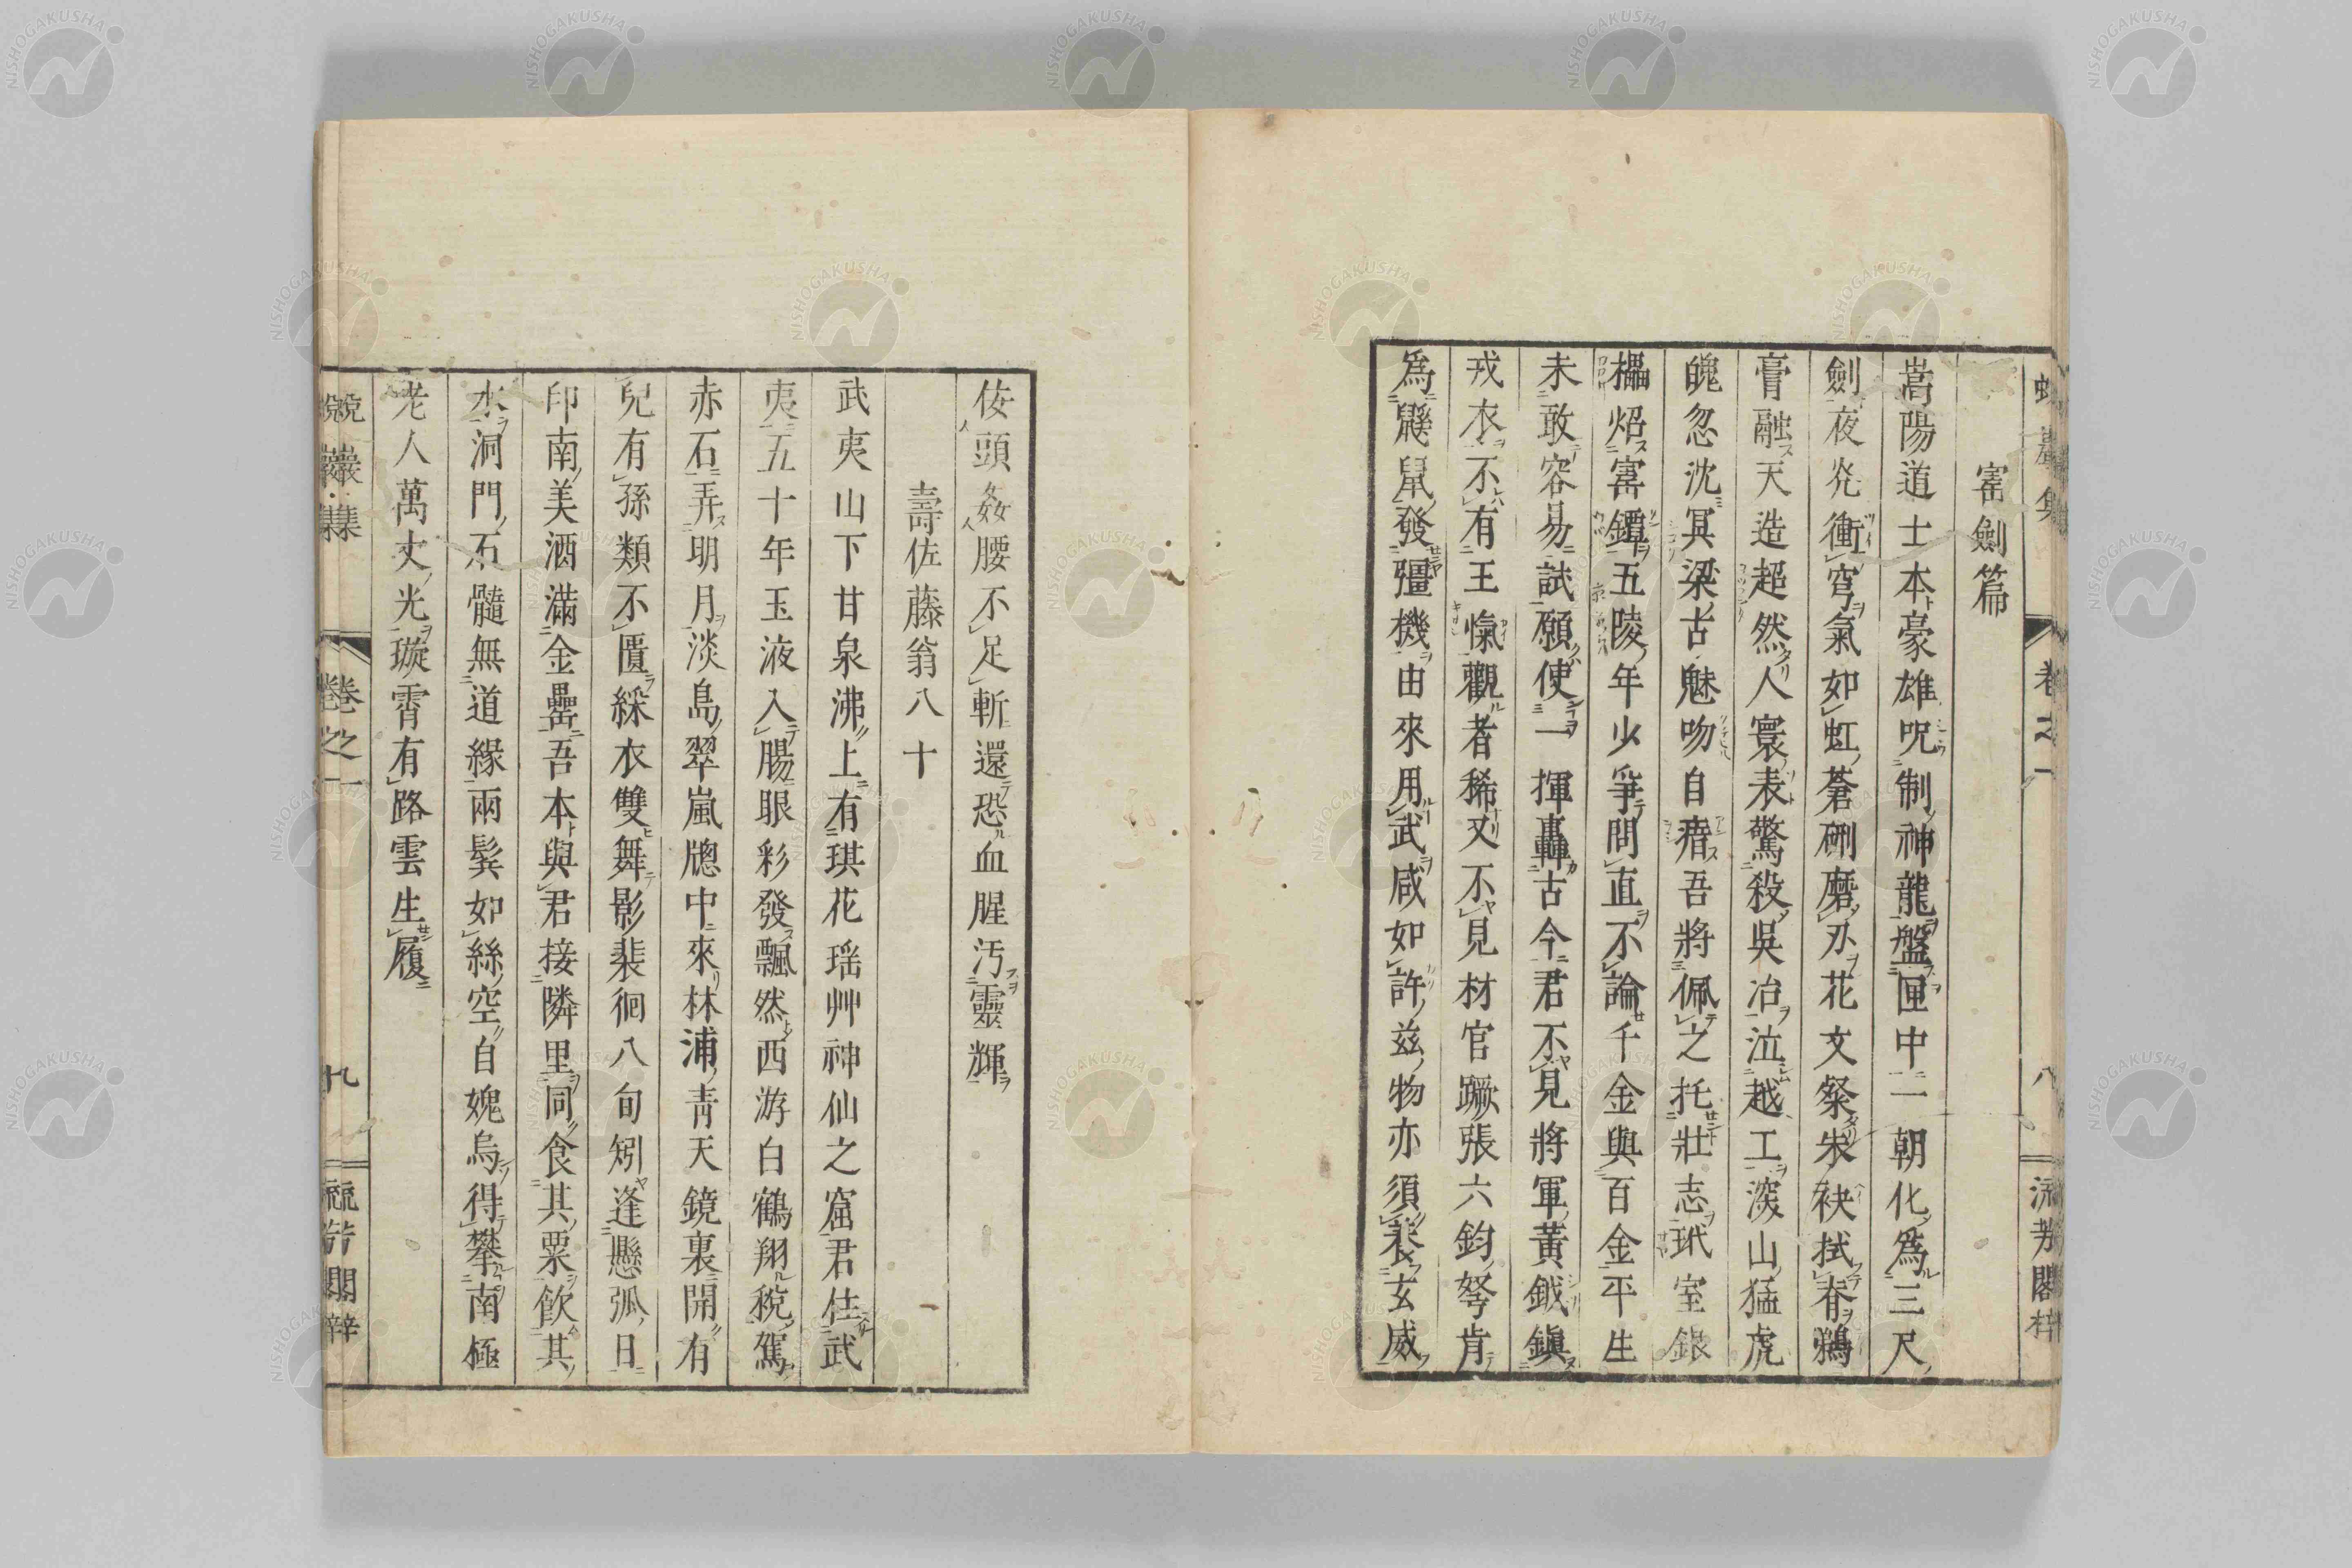 寗劍篇
嵩陽道士本豪雄呪制神龍盤匣中一朝化爲三尺
劍夜光衝穹氣如虹蒼硎磨刃花文粲朱袂拭春鵜
膏融天造超然人寰表驚殺吳冶泣越工深山猛虎
魄忽沈冥梁古魅吻自瘖吾將佩之托壯志玳室銀
欛炤寗鐔五陵年少爭問直不論千金與百金平生
未敢容易試願使一揮轟古今君不見將軍黃鉞鎭
戎衣不有王愾觀者稀又不見材官蹶張六鈞弩肯
爲鼷鼠發彊機由來用武咸如許玆物亦須裹玄威
佞頭姦腰不足斬還恐血腥汚靈輝
壽佐藤翁八十
武夷山下甘泉沸上有琪花瑶艸神仙之窟君住武
夷五十年玉液入腸眼彩發飄然西游白鶴翔稅駕
赤石弄明月淡島翠嵐牕中來林浦青天鏡裏開有
兒有孫類不匱綵衣雙舞影裴徊八旬矧逢懸弧日
印南美酒滿金罍吾本與君接隣里同食其粟飮其
水洞門石髓無道緣兩髩如絲空自媿烏得攀南極
老人萬丈光璇霄有路雲生履
卷之一
九